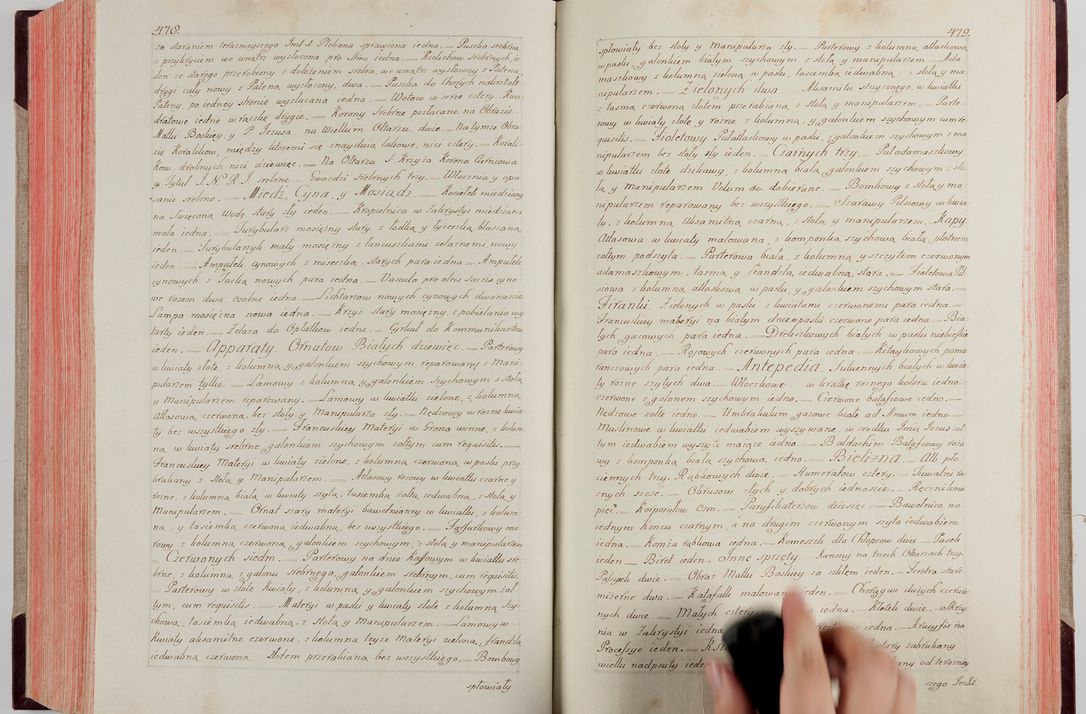 478.
za staraniem teraznieyszego Jmć X Plebana sprawiona iedna. — Puszka srebrna
z przykryciem we wnątrz wyzłocona pro
den ze starego przerobiony z dołożeniem srebra, we wnątrz wyzłocony z Pateną
drugi cały nowy z Pateną wyzłocony, dwa. — Puszka do Chorych nakształt
Patyny, po iedney stronie wyzłacana iedna. — Wotow w serce cztery, Kwa-
dratowe iedno wrączkę drugie. — Korony srebrne pozłacane na Obrazie
Matki Boskiey y P. Jezusa, na Wielkim Ołtarzu dwie. Na tymze Obra-
zie Koralikow, między ktoremi się znayduią lakowe, nici cztery. — Korali-
kow drobnych nici dziewięc. — Na Ołtarzu S. Krzyża Korona Cierniowa
y Tytuł I. N. R. I. srebrne. — Gwozdzi srebrnych trzy. — Włocznia y opa-
sanie srebrne. — Miedź, Cyna, y Mosiądz. — Kociełek miedziany
na Swięconą Wodę stary zły ieden. — Kropielnica w Zakrystyi miedziana
mała iedna. — Turybularz mosiężny stary z łodką y łyżeczką blaszaną
ieden. — Turybularzyk mały mosiężny z łancuszkami żelaznemi, nowy
ieden. — Ampułek cynowych z miseczką, starych para iedna. — Ampułek
cynowych z Tacką nowych para iedna. — Vascula pro oleis Sacris cyno-
we razem dwa, osobne iedno. — Lichtarzow nowych cynowych dwanascie.
Lampa mosiężna nowa iedna. — Krzyż stary mosiężny, z pobielania wy-
tarty ieden. — Żelaza do Opłatkow iedne. — Cyrkuł do Kommunikantow
ieden. — Apparaty. Ornatow Białych dziewięc. — Parterowy
w kwiaty złote, z kolumną y galonkiem szychowym reparowany z Mani-
pularzem tylko. — Lamowy z kolumną y galonkiem szychowym z stołą
y Manipularzem reparowany. — Lamowy w kwiatki zielone, z kolumną
Atłasową czerwoną, bez stoły y Manipularza zły. — Nędzowy w rozne kwia-
ty bez wszystkiego zły. — Francuskiey Materyi w Grona winne, z kolum-
ną w kwiaty srebrne galonkiem szychowym żołtym cum requisitis. —
Francuskiey Materyi w kwiaty zielone, z kolumną czerwoną w paski przy-
brukany z Stołą y Manipularzem. — Atłasowy rozowy w kwiatki czarne y
rozne, z kolumną białą w kwiaty szytą, tasiemką żołtą iedwabną, z stołą y
Manipularzem. — Ornat szary materyi bawełnianey w kwiatki, z kolum-
ną, y tasiemką czerwoną iedwabną, bez wszystkiego. — Tarfurkowy
rowy z kolumną czerwoną, galonkiem szychowym, z stołą y manipularzem
— Czerwonych siedm. — Parterowy na dnie Kafowym w kwiatki sre-
brne, z kolumną z galonu srebrnego, galonkiem srebrnym, cum requisitis.
— Parterowy w złote Kwiaty, z kolumną y galonkiem szychowym żoł-
tym, cum requisitis. — Materyi w paski y kwiaty złote z kolumną szy-
chową, tasiemką iedwabną, z Stołą y Manipularzem. — Lamowy w
Kwiaty aksamitne czerwone, z kolumną teyże Materyi zieloną, frandzlą
iedwabną czerwoną złotem przerabianą, bez wszystkiego. — Bombowy
spłowiały
479.
spłowiały bez stoły y Manipularza zły. — Parterowy z kolumną atłaskową
w paski, galonkiem białym szychowym z stołą y manipularzem. — Ada-
maszkowy z kolumną zieloną w paski, tasiemką iedwabną, z stołą y ma-
nipularzem. — Zielonych dwa. — Aksamitu strzyżonego, w kwiatki
z tasmą czerwoną złotem przerabianą, z stołą y manipularzem. — Parte-
rowy w kwiaty złote y rozne z kolumną, y galonkiem szychowym cum re-
quisitis. — Fioletowy Pułatłaskowy w paski, z galonkiem szychowym z ma-
nipularzem bez stoły zły ieden. — Czarnych trzy. — Puładamaszkowy
w kwiatki złote dzikawy, z kolumną białą, galonkiem szychowym z sto-
łą, y manipularzem. Velum do dobierane. — Bombowy z stołą y ma-
nipularzem reparowany bez wszystkiego. — Szarawy Pilsiowy w kwia-
ty, z kolumną Aksamitną czarną, z Stołą y manipularzem. Kapy.
Atłasowa w kwiaty malowana, z komponką szychową białą, płotnem
żołtym podszyta. — Parterowa biała, z kolumną y szczytem czerwonym
adamaszkowym, tasmą y frandzlą iedwabną, stara. — Fioletowa Pil-
siowa z kolumną atłaskową w paski, y galonkiem szychowym stara. —
Firanki. Zielonych w paski z kwiatami czerwonemi para iedna. —
Francuskiey materyi na białym dnie w paski czerwone para iedna. — Bia-
łych gazowych para iedna. — Dreliszkowych białych w paski niebieskie
para iedna. — Rojowych czerwonych para iedna. — Kitaykowych poma-
ranczowych para iedna. — Antepedia. Sukiennych białych w kwia-
ty rozne szytych dwa. — Włoczkowe w kratkę roznego koloru iedno. —
czerwone z galonem szychowym iedno. — Czerwone bałafiowe iedno. —
Nędzowe żołte iedno. — Umbrakulum gazowe białe ad iedno. —
Muslinowe w kwiatki iedwabiem wyszywane, w srodku Jmię Jezus żoł-
tym iedwabiem wyszyte maiące iedno. — Baldachim Bałafiowy rozo-
wy z komponką białą szychową iedno. — Bielizna. — Alb pło-
ciennych trzy. Rąbkowych dwie. — Humerałow cztery. — Tuwalni ro-
znych szesc. — Obrusow złych y dobrych iednascie. — Ręcznikow
pięc. — Korporałow osm. — Puryfikaterzow dziesięc. — Bawełnica na
iednym koncu czarnym, a na drugim czerwonym szyta iedwabiem
iedna. — Komża rąbkowa iedna. — Komeszek dla Chłopcow dwie. — Pasek
ieden. — Biret ieden. Inne sprzęty. — Kanony na trzech Ołtarzach trzy.
Passyiek dwie. — Obraz Matki Boskiey za szkłem ieden. — Feretra stare
mizerne dwa. — Katafalk malowany ieden. — Chorągwi dużych czerwo-
nych dwie. — Małych cztery iedna. — Klatek dwie. — Skrzy-
nia w Zakrystyi iedna iedna. — Krucyfix na
Processye ieden. — stary zabrukany
wielki nadpsuty ieden any od teraznie-
szego Jmć X.